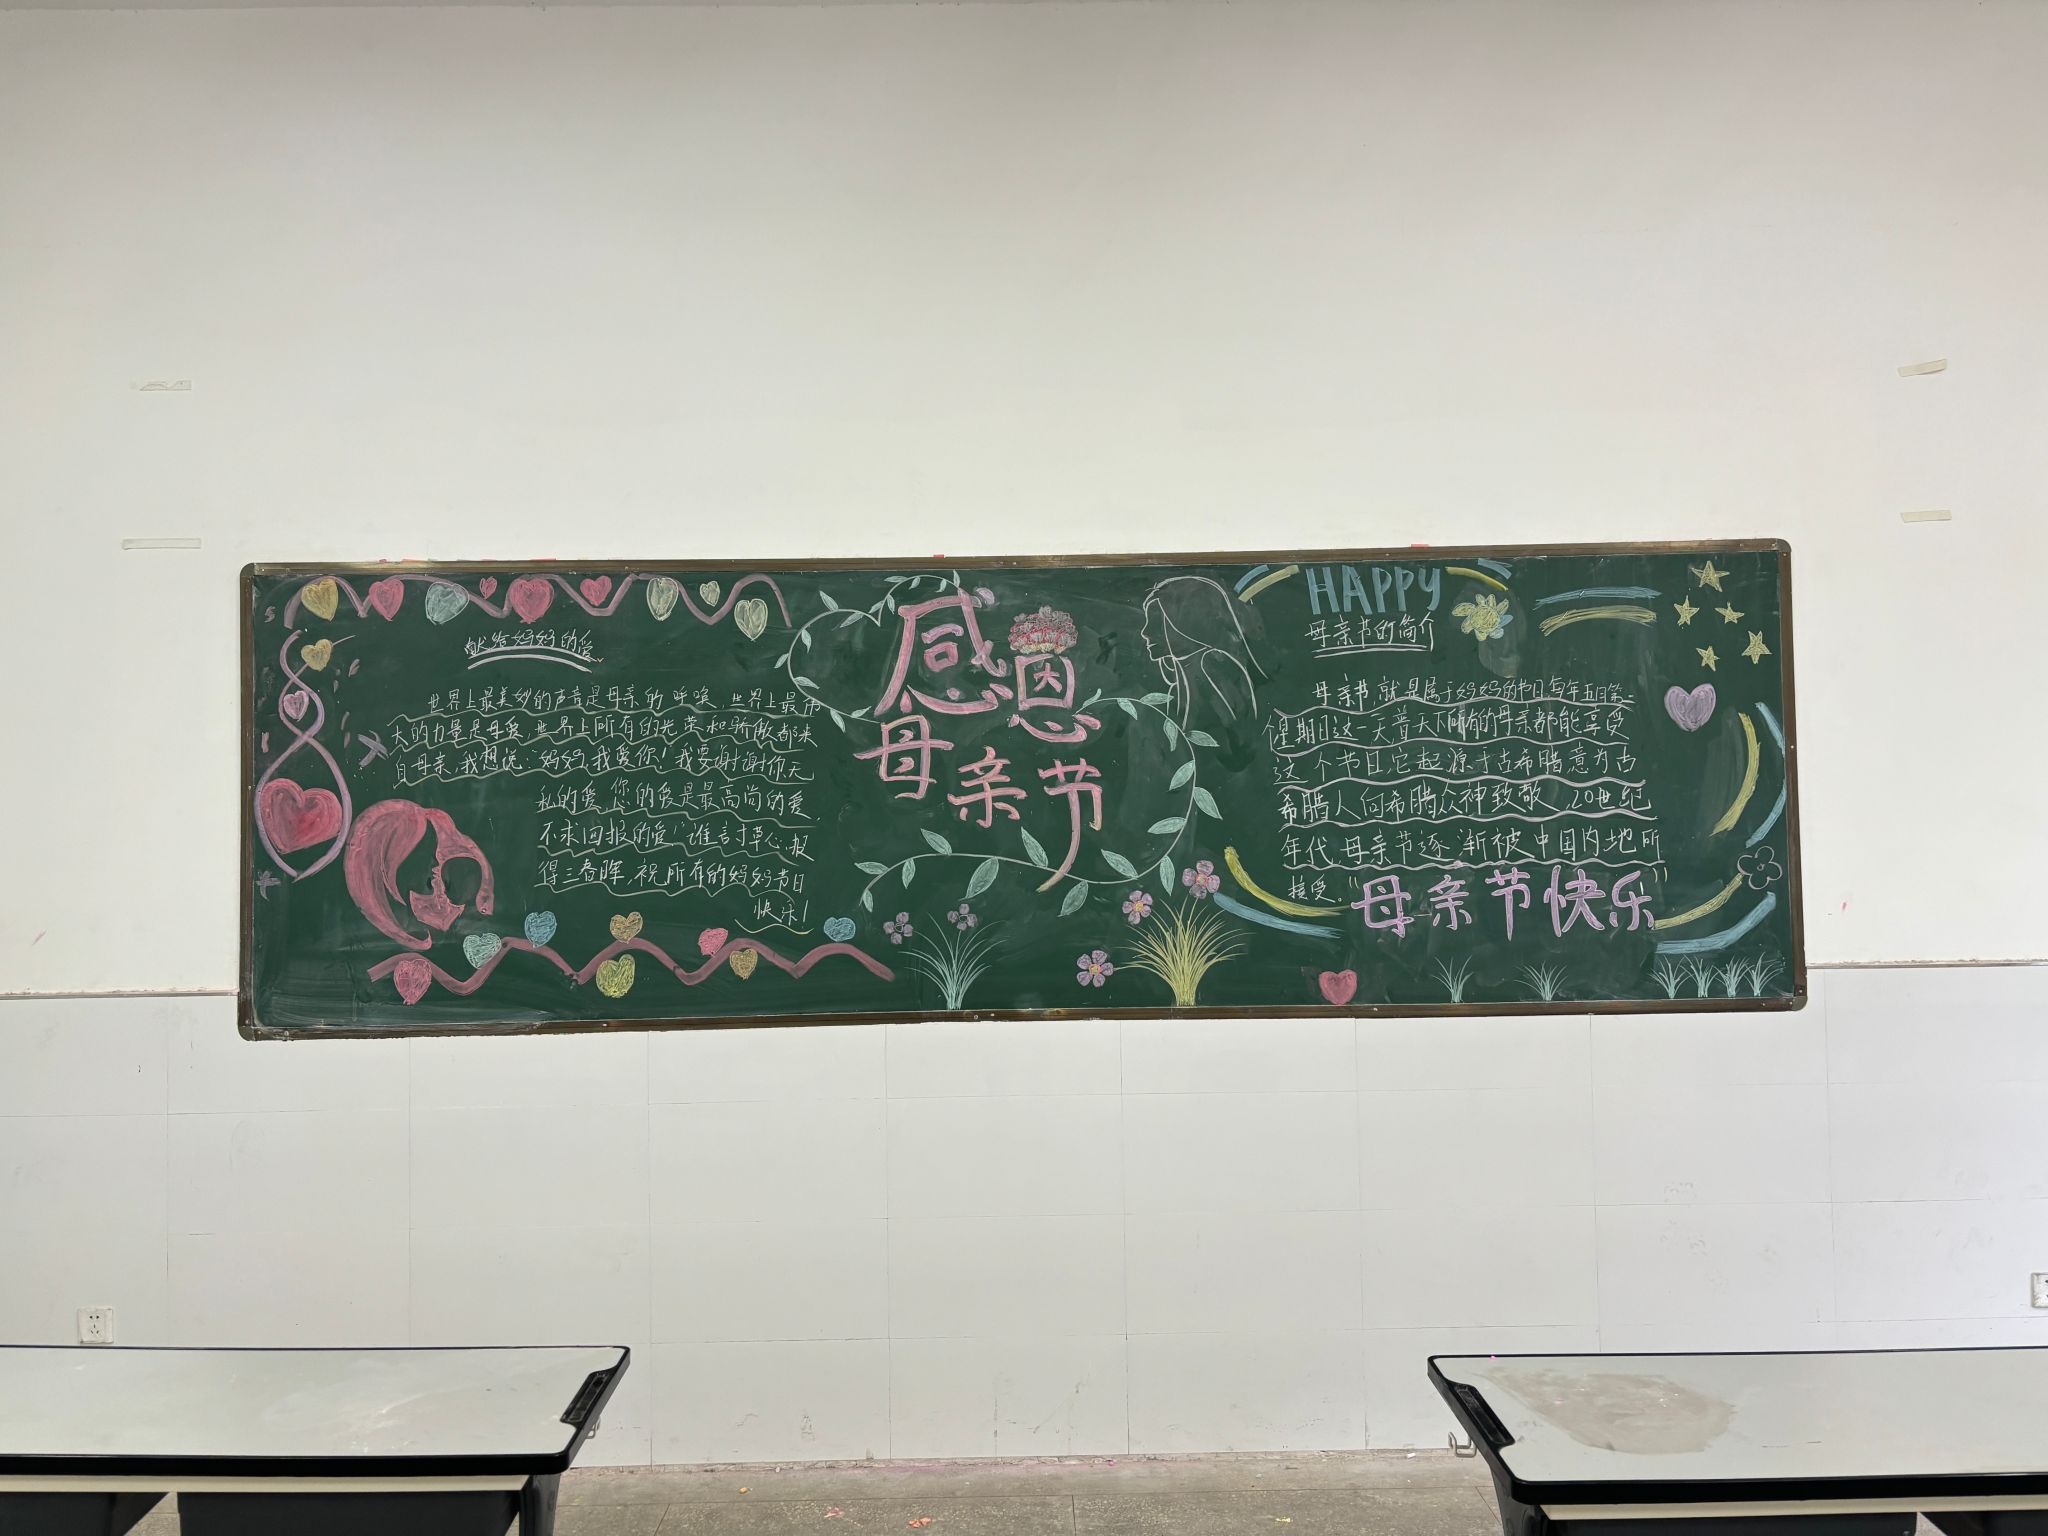 献给妈妈的爱
世界上最美妙的声音是母亲的呼唤,世界上最伟
大的力量是母爱,世界上所有的光荣和骄傲都来
自母亲,我想说:妈妈,我爱你!我要谢谢你无
私的爱,您的爱是最高尚的爱,
不求回报的爱!"谁言寸草心,报
得三春晖,祝所有的妈妈节日
快乐!
感恩
母亲节
HAPPY
母亲节的简介
母亲节,就是属于妈妈的节日,每年五月第二
个星期日这一天普天下所有的母亲都能享受
这个节日,它起源于古希腊意为古
希腊人向希腊众神致敬,20世纪
年代,母亲节逐渐被中国内地所
接受。
"母亲节快乐"